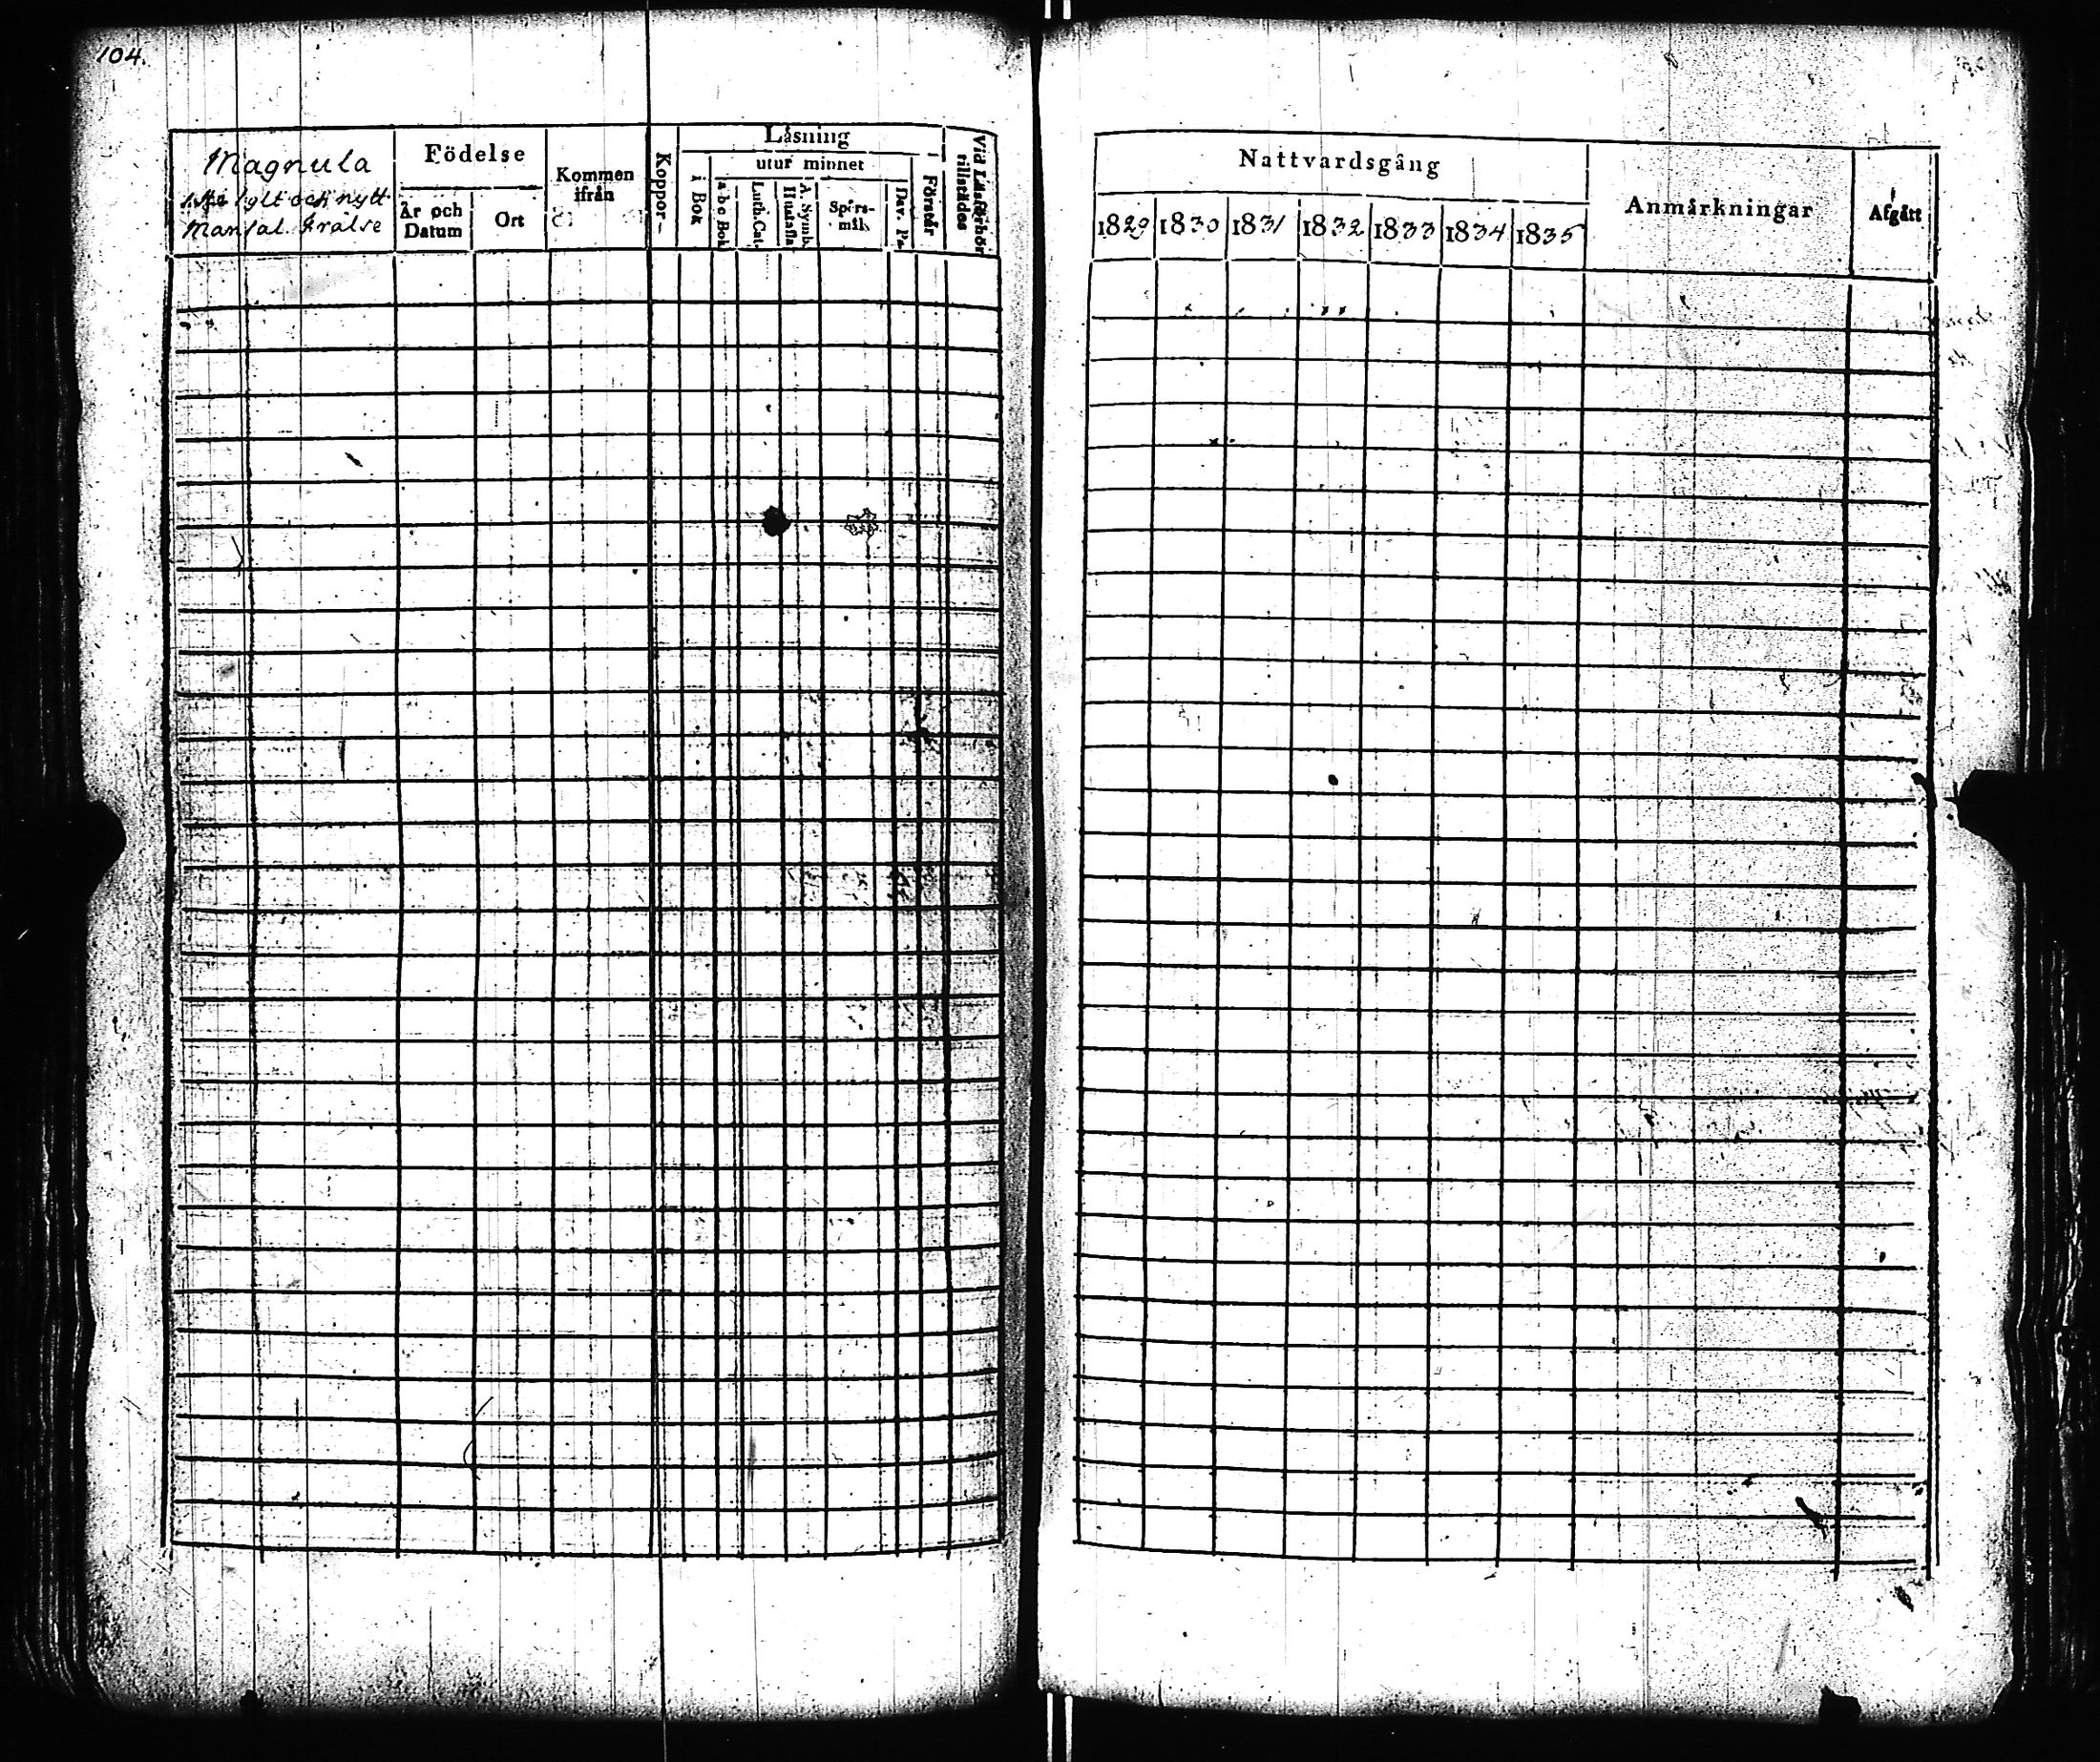 104.
Magnula
gltochnytt
Mansal. Frälse
Födelse
År och Datum
Ort
Kommen ifrån
Koppor
Låsning
i Bok
utur minnet
a b c Bok
Luth. Cat.
Hustafla
A. Symb.
Spörs-
mål.
Dav. Ps.
Förstår
Vid Låsförhör tillstådes
Nattvardsgång
1829 1830 1831 1832 1833 1834 1835
Anmärkningar
Afgått